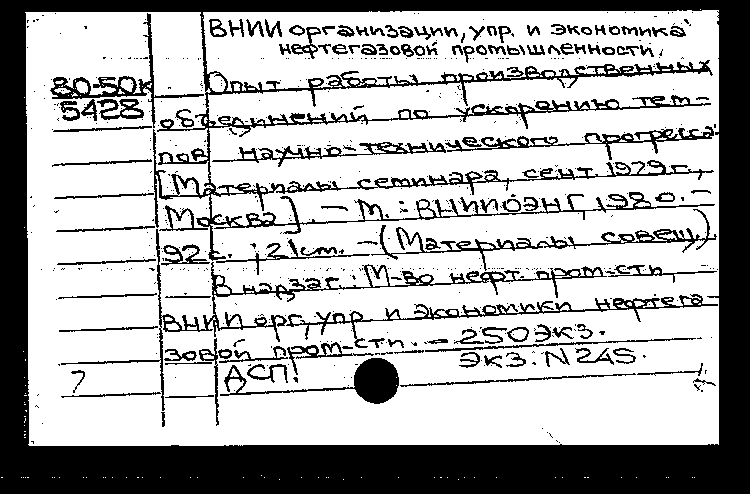 ВНИИ организации, упр. и экономика
нефтегазовой промышленности.
80-50к Опыт работы производственных
5428 объединений по ускорению тем-
пов научно-технического прогресса:
[Материалы семинара, сент. 1979 г.,
Москва]. — М.: ВНИИОЭНГ, 1980. —
92 с.; 21 cm. — (Материалы совещ.)
В надзаг.: М-во нефт. пром-сти,
ВНИИ орг., упр. и экономики нефтега-
зовой пром-сти. — 250 экз.
экз. N 245.
7 ДСП!